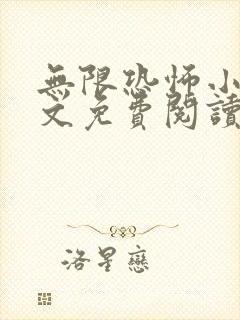 無限恐怖小
文免費閱讀
洛星戀